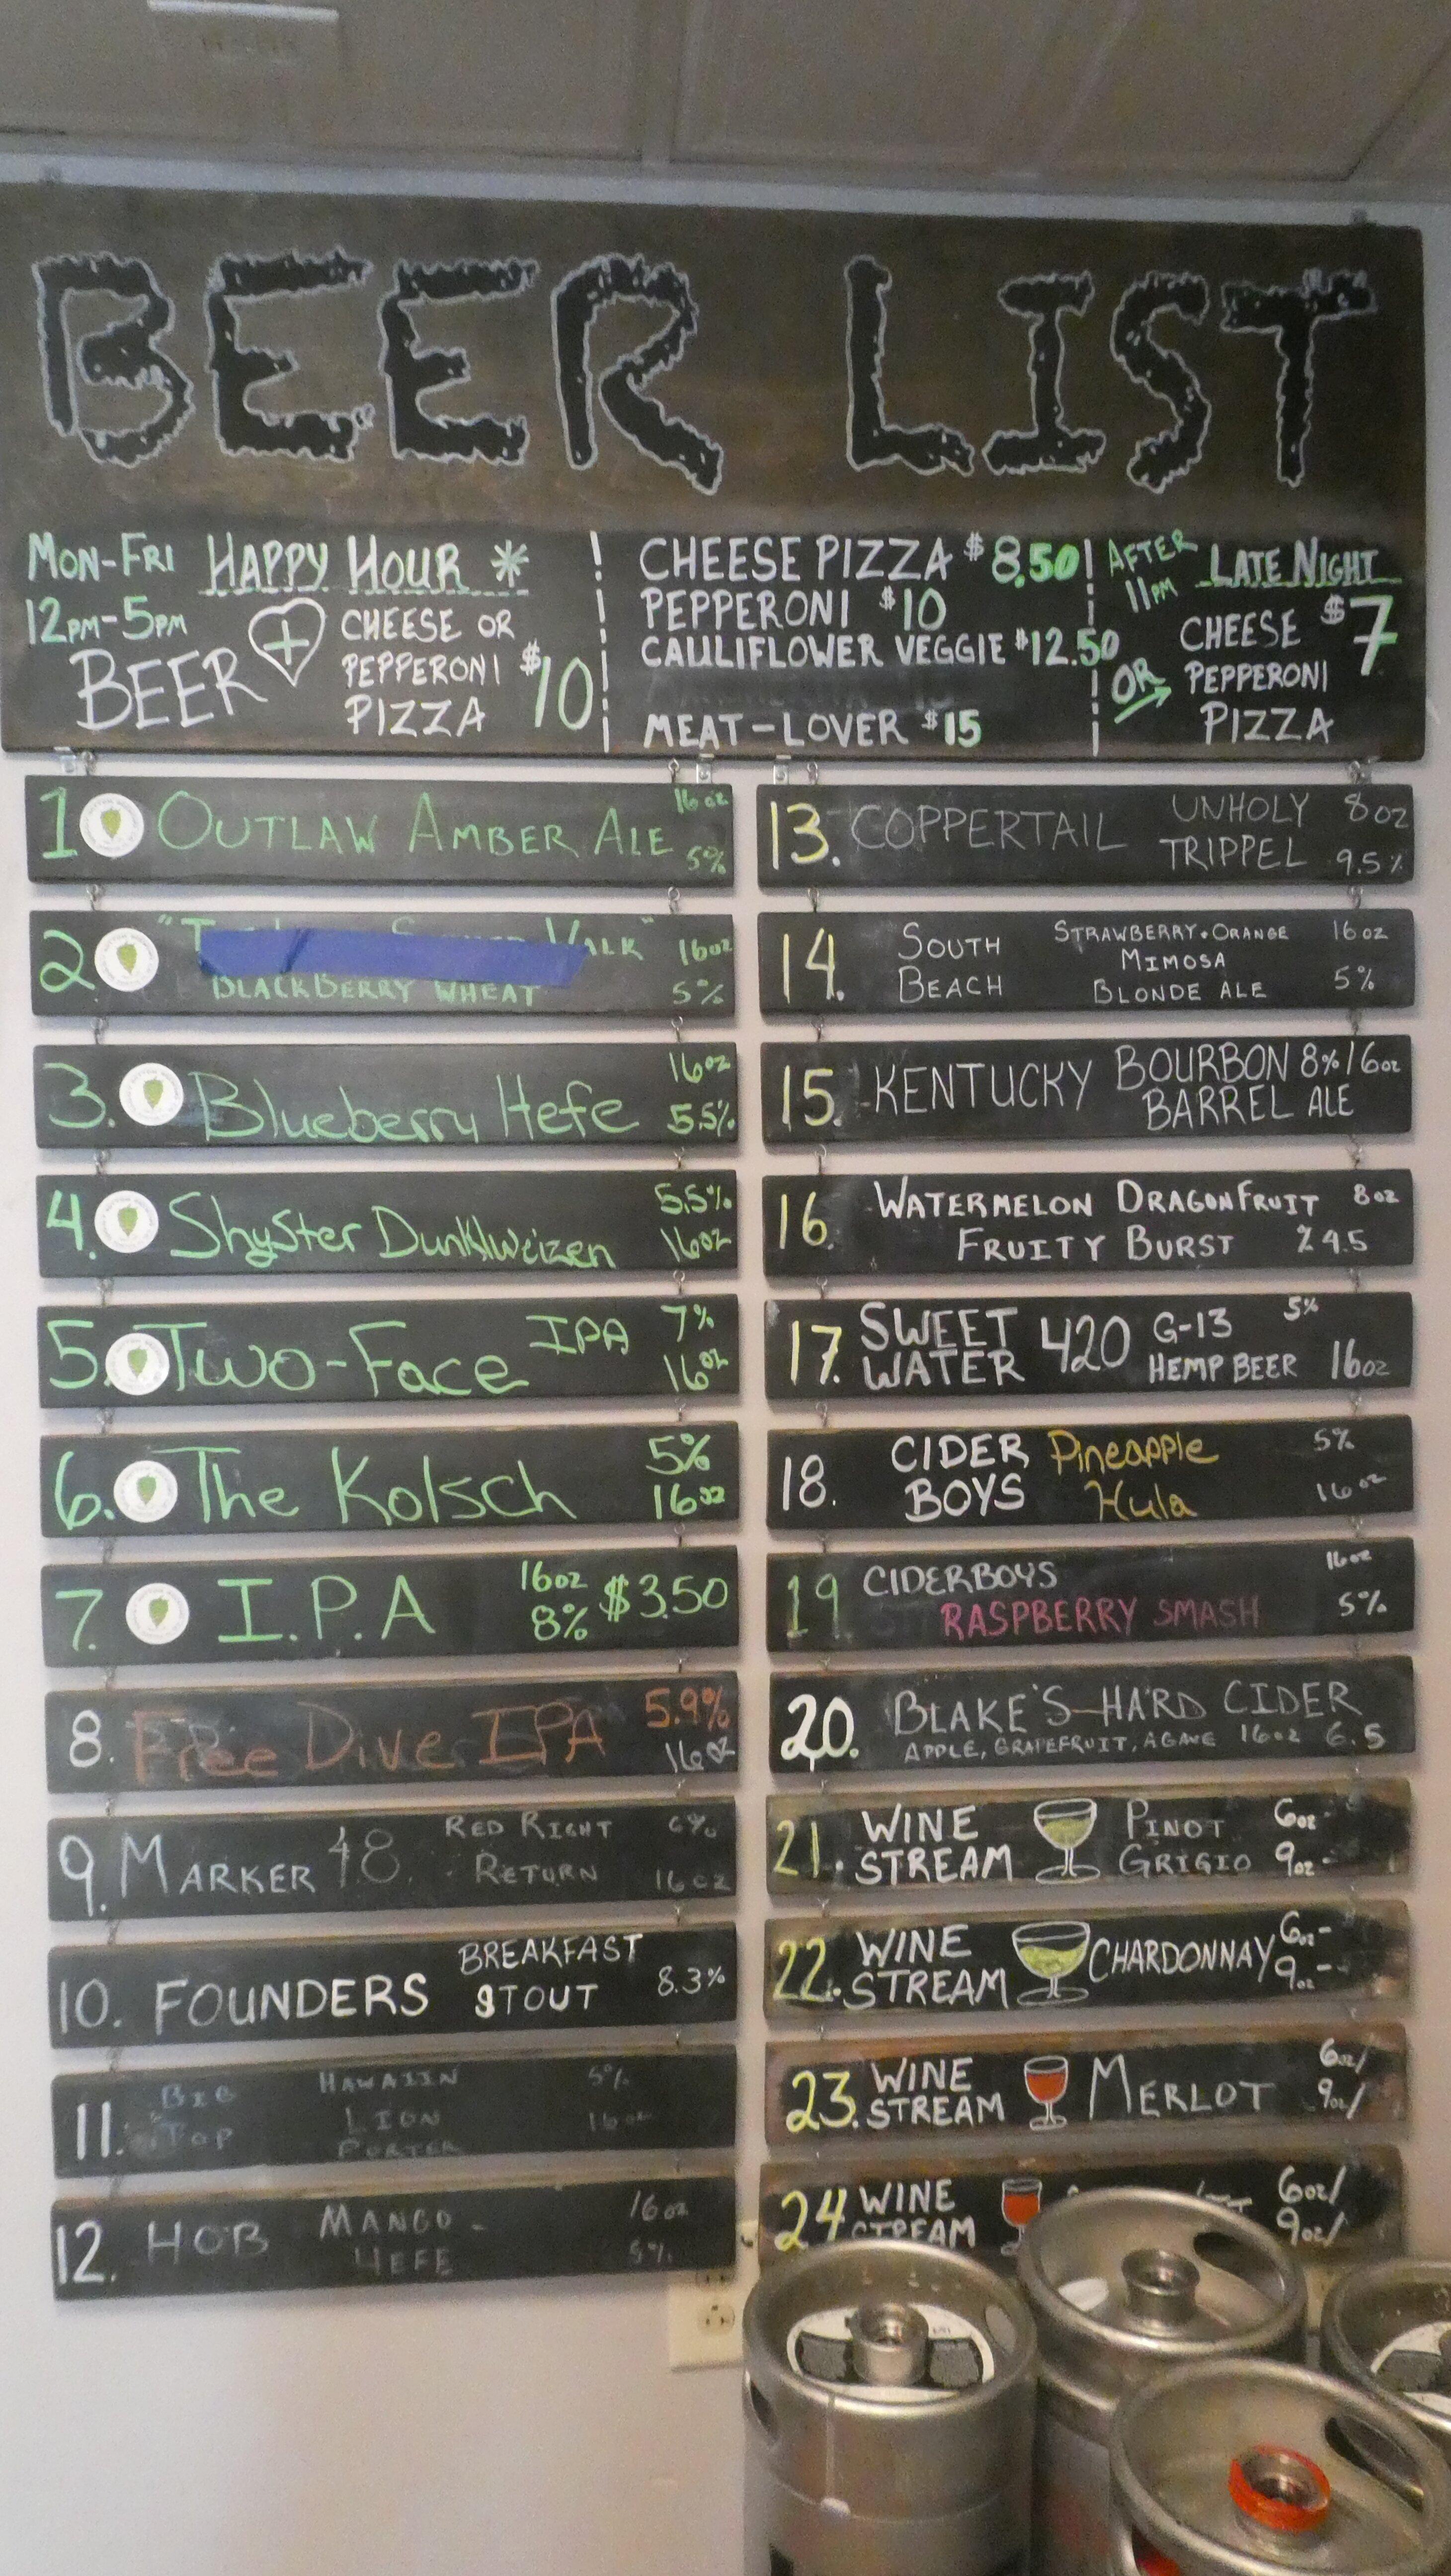 BEER LIST
MON-FRI HAPPY HOUR *
12PM-5PM
BEER + CHEESE OR
PEPPERONI $10
PIZZA
CHEESE PIZZA $8.50
PEPPERONI $10
CAULIFLOWER VEGGIE $12.50
MEAT-LOVER $15
AFTER 11PM LATE NIGHT
CHEESE $7
OR PEPPERONI
PIZZA
1 OUTLAW AMBER ALE 16oz 5%
2 WALK" 16oz
BLACKBERRY WHEAT 5%
3. Blueberry Hefe 16oz 5.5%
4. Shyster Dunklweizen 5.5% 16oz
5. Two-Face IPA 7% 16oz
6. The Kolsch 5% 16oz
7. I.P.A 16oz 8% $3.50
8. Free Dive IPA 5.9% 16oz
9. MARKER 48 RED RIGHT 6%
RETURN 16oz
10. FOUNDERS BREAKFAST
STOUT 8.3%
11. BIG HAWAIIN 5%
TOP LION 16oz
PORTER
12. HOB MANGO - 16oz
HEFE 5%
13. COPPERTAIL UNHOLY 8oz
TRIPPEL 9.5%
14. SOUTH STRAWBERRY•ORANGE 16oz
MIMOSA
BEACH BLONDE ALE 5%
15. KENTUCKY BOURBON 8% 16oz
BARREL ALE
16 WATERMELON DRAGONFRUIT 8oz
FRUITY BURST %4.5
17. SWEET 420 G-13 5%
WATER HEMP BEER 16oz
18. CIDER Pineapple 5%
BOYS Hula 16oz
19 CIDERBOYS 16oz
RASPBERRY SMASH 5%
20. BLAKE'S-HARD CIDER
APPLE, GRAPEFRUIT, AGAVE 16oz 6.5
21. WINE PINOT 6oz-
STREAM GRIGIO 9oz-
22. WINE CHARDONNAY 6oz-
STREAM 9oz-
23. WINE MERLOT 6oz/
STREAM 9oz/
24 WINE 6oz/
STREAM 9oz/